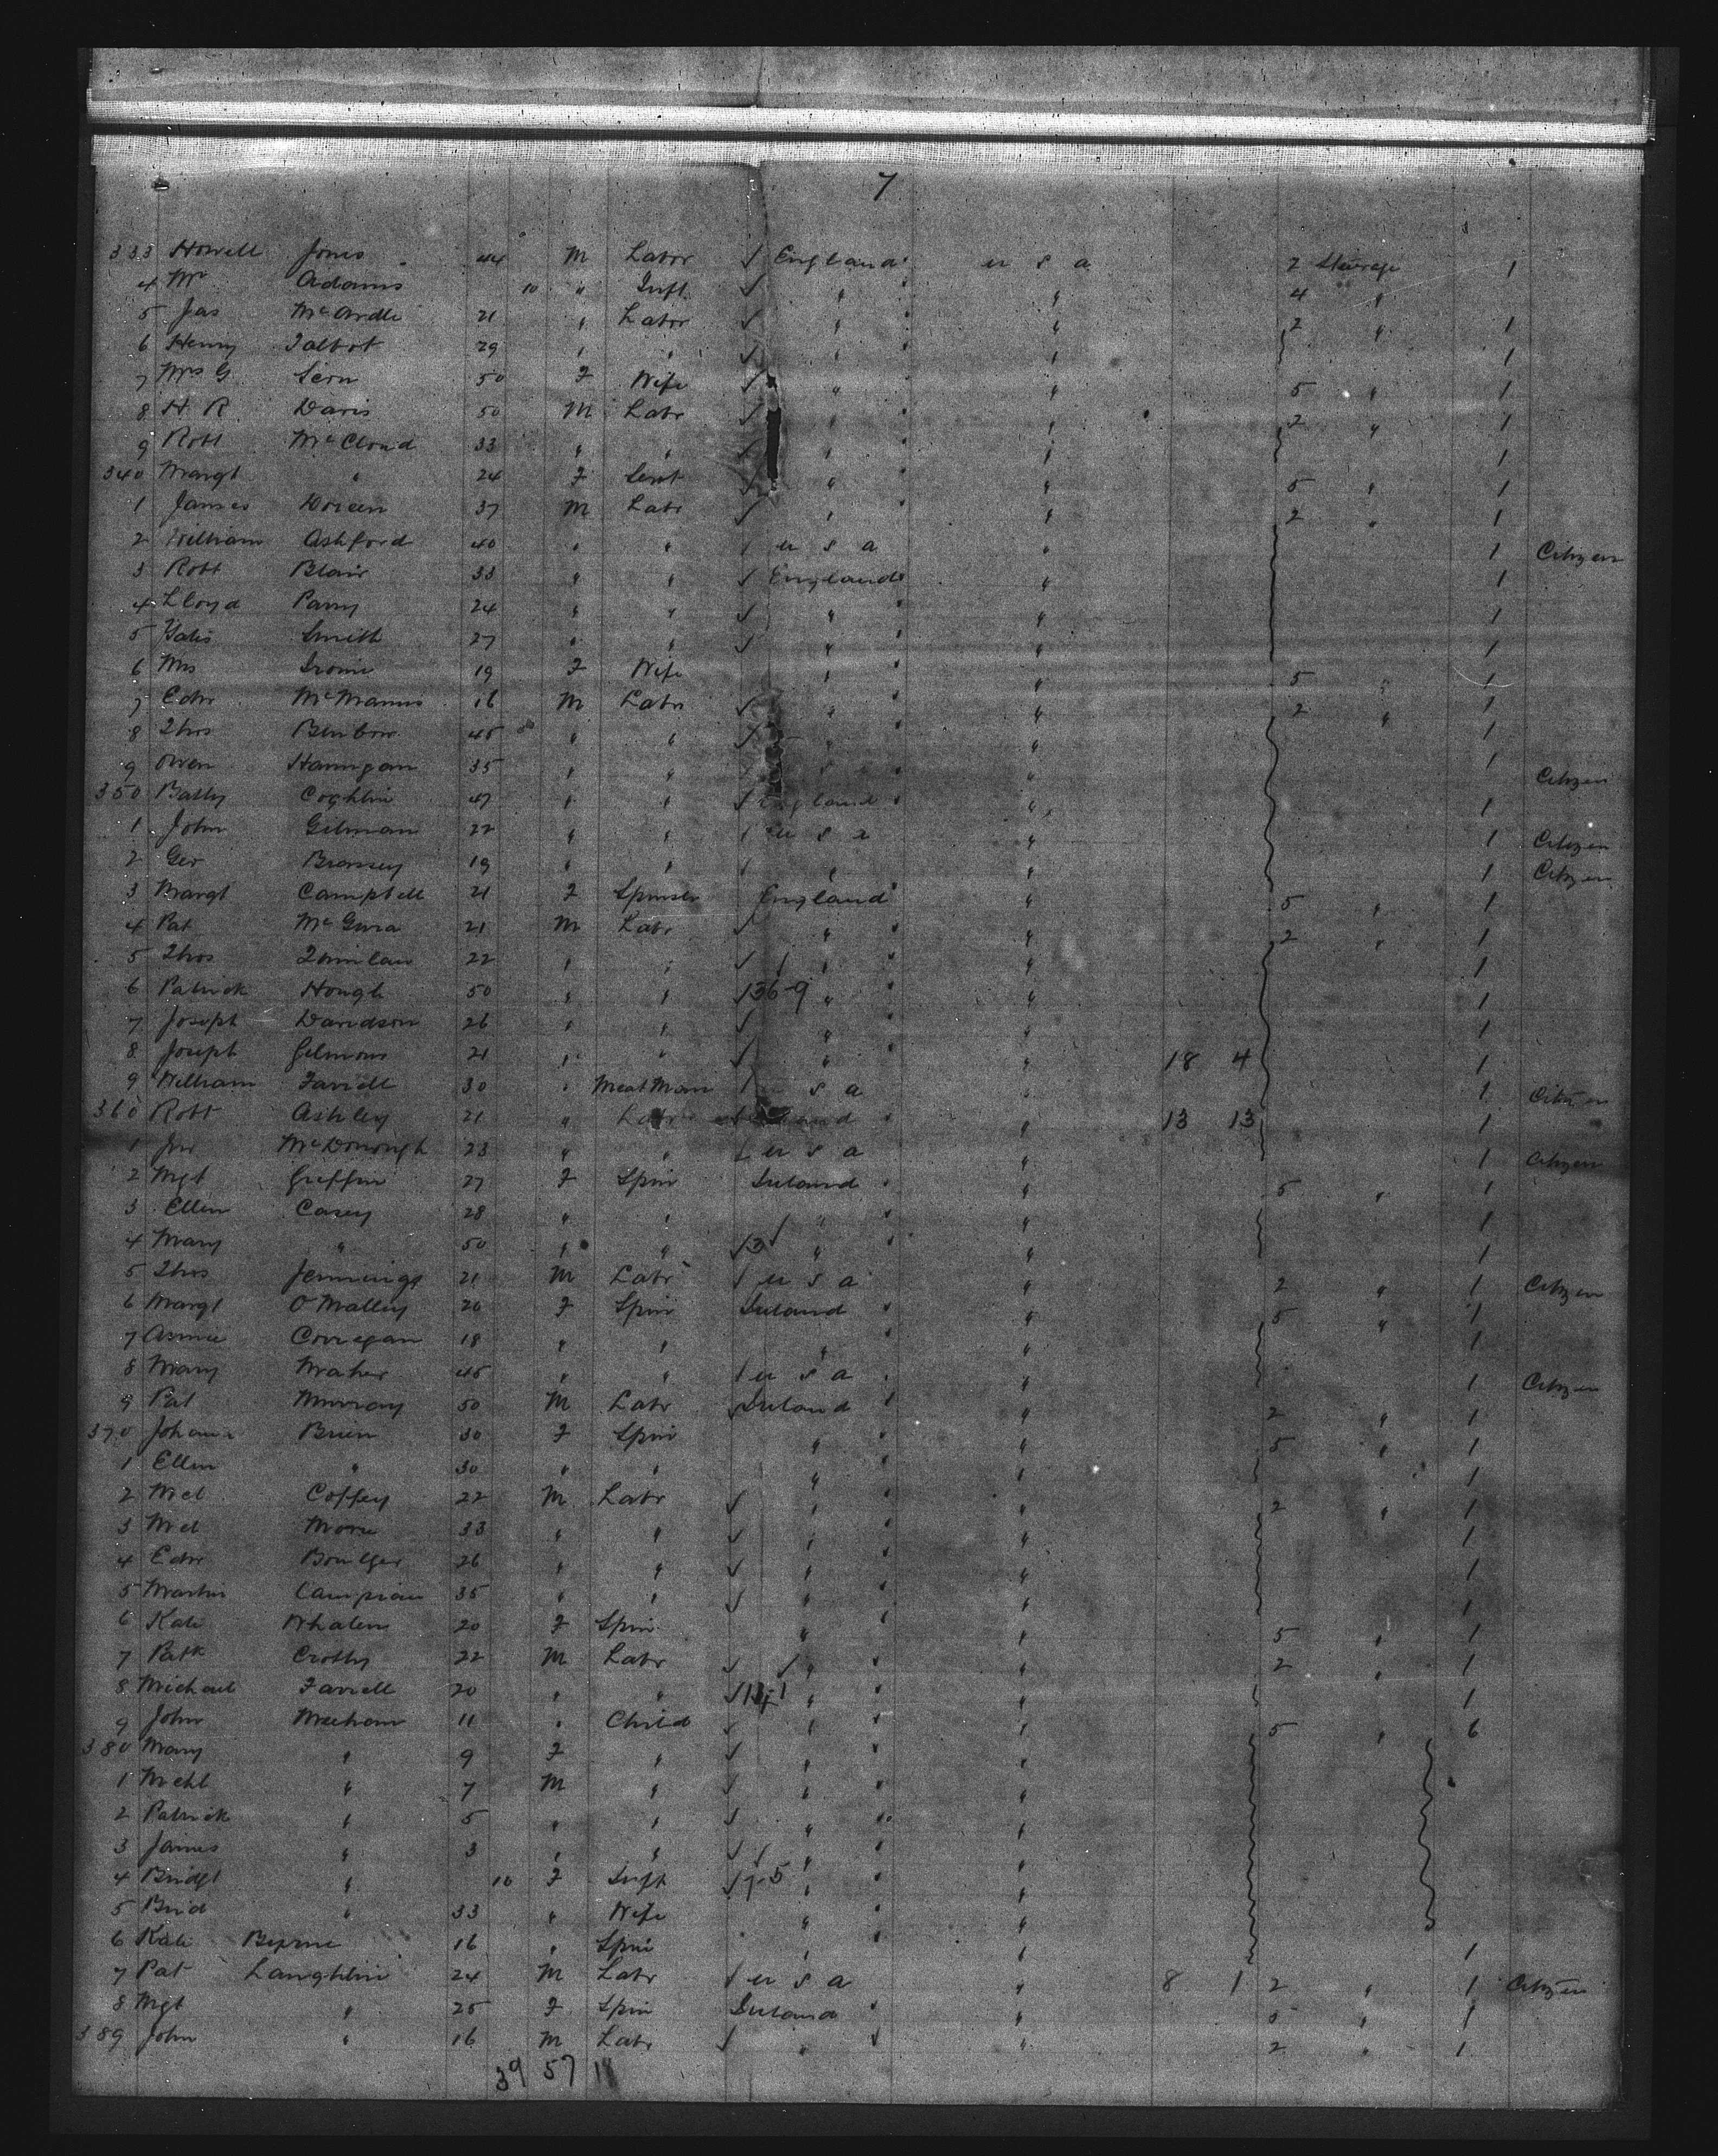 7
333 Howell Jones 44 M Labor √ England u s a 2 Steerage 1
4 Mr Adams 10 " Inft √ " " 4 "
5 Jas McArdle 21 " Labor √ " " 2 " 1
6 Henry Talbot 29 " " √ " " 1
7 Mrs G 50 F Wife √ " " 5 " 1
8 H R Davis 50 M Labr √ " " 2 " 1
9 Robt McCloud 33 " " √ " " 1
340 Margt " 24 F Sert √ " " 5 " 1
1 James 37 M Labr √ " " 2 " 1
2 William Ashford 40 " " / u s a " 1 Citizen
3 Robt Blair 33 " " √ England " 1
4 Lloyd Parry 24 " " √ " " 1
5 Yates Smith 27 " " √ " " 1
6 Mrs 19 F Wife " " 5 " 1
7 Edw McManus 16 M Labr √ " " 2 " 1
8 Thos Benbow 45 " " √ " "
9 Owen Hannigan 35 " " s " 1 Citizen
350 Batty Coghlin 47 " " √ England " 1
1 John Gilman 22 " " / u s a " 1 Citizen
2 Geo 19 " " / " " 1 Citizen
3 Margt Campbell 21 F Spinster England " 5 " 1
4 Pat 21 M Labr √ " " 2 " 1
5 Thos Quinlan 22 " " √ " " 1
6 Patrick Hough 50 " " √ 36-9 " " 1
7 Joseph Davidson 26 " " √ " " 1
8 Joseph Gilmour 21 " " √ " " 18 4 1
9 William Farrell 30 " Meat Man / u s a " 1 Citizen
360 Robt Ashley 21 " Labr " 13 13 1
1 Jno McDonough 23 " " / u s a " 1 Citizen
2 Mgt Griffin 27 F Spin Ireland " 5 " 1
3 Ellen Casey 28 " " " " 1
4 Mary " 50 " " √ 3 " " 1
5 Thos Jennings 21 M Labr / u s a " 2 " 1 Citizen
6 Margt O'Malley 20 F Spin Ireland " 5 " 1
7 Annie Corregan 18 " " " " 1
8 Mary Maher 45 " " / u s a " 1 Citizen
9 Pat Murray 50 M Labr √ Ireland " 2 " 1
370 Johana Brien 30 F Spin " " 5 " 1
1 Ellen " 30 " " " " 1
2 Mcl Coffey 22 M Labr √ " " 2 " 1
3 Mcl 33 " " √ " " 1
4 Edw Boulger 26 " " √ " " 1
5 Martin Campian 35 " " √ " " 1
6 Kate Whalen 20 F Spin " " 5 " 1
7 Patk Crotty 22 M Labr √ " " 2 " 1
8 Michael Farrell 20 " " √ " " 1
9 John Meehan 11 " Child √ " " 5 " 6
380 Mary " 9 F " √ " "
1 Mchl " 7 M " √ " "
2 Patrick " 5 " " √ " "
3 James " 3 " " √ " "
4 Bridgt " 10 F Inft √ 7-5 " "
5 Brid " 33 " Wife " "
6 Kate Byrne 16 " Spin " " 1
7 Pat Laughlin 24 M Labr / u s a " 8 1 2 " 1 Citizen
8 Mgt " 25 F Spin Ireland " 5 " 1
389 John " 16 M Labr √ " " 2 " 1
39 57